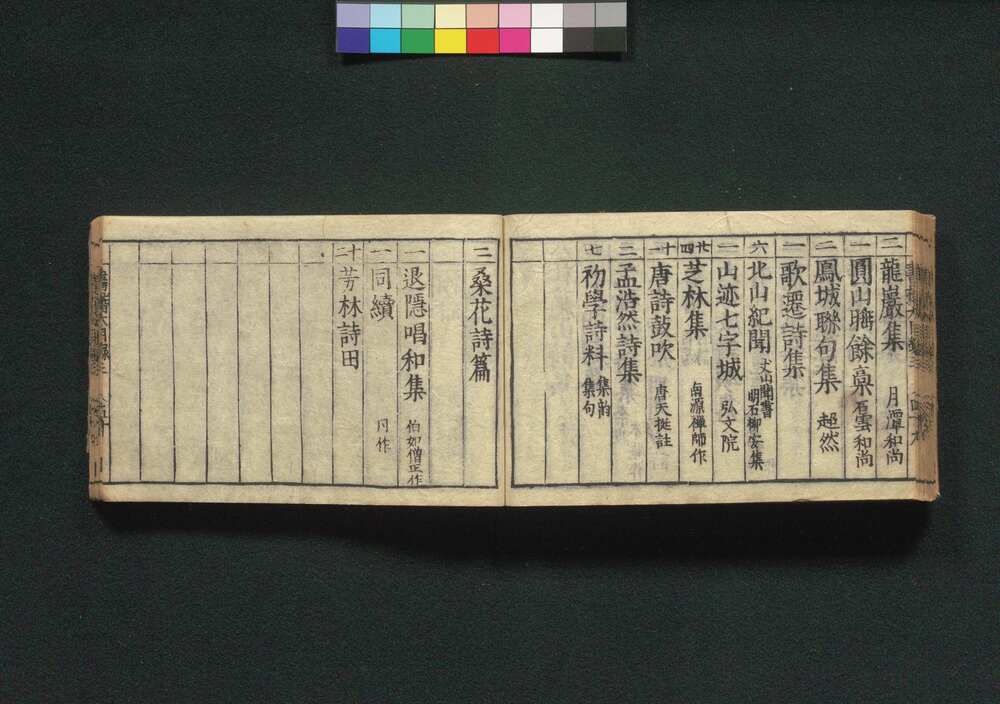 二 龍巖集 月潭和尚
一 圓山鴫餘稾 石雲和尚
二 鳳城聯句集 超然
一 歌遷詩集
六 北山紀聞 丈山聞書 明石柳安集
一 山迹七字城 弘文院
廿四 芝林集 南源禅師作
十一 唐詩鼓吹 唐天挺註
三 孟浩然詩集
七 初學詩料 集韵 集句
二 桑花詩篇
一 退隠唱和集 伯如僧正作
一 同續 同作
十二 芳林詩田